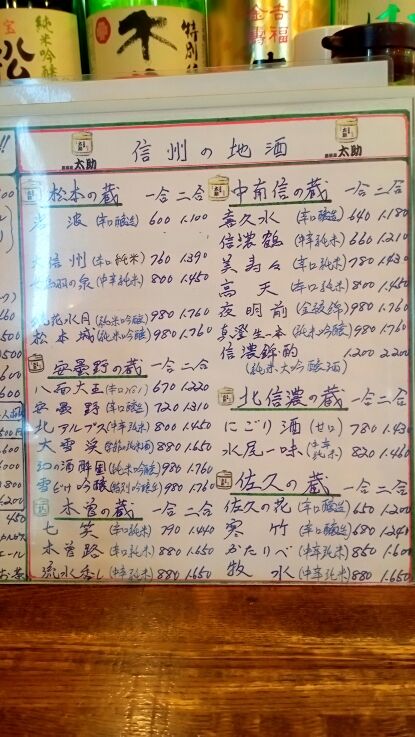 信州の地酒
太助
太助
松本の蔵 一合 二合
岩波(辛口醸造) 600 1.100
大信州(辛口純米) 760 1.390
の泉(中辛純米) 800 1.450
花水月(純米吟醸) 980 1.760
松本城(純米吟醸) 980 1.760
安曇野の蔵 一合 二合
八面大王(辛口) 670 1.220
安曇野(辛口醸造) 720 1.310
北アルプス(中辛純米) 800 1.450
大雪渓 880 1.650
幻の酒酔園(純米吟醸) 980 1.760
雪どけ吟醸(特別吟醸) 980 1.760
木曽の蔵 一合 二合
七笑(辛口純米) 790 1.440
木曽路(辛口純米) 880 1.650
流水香し(中辛純米) 880 1.650
中南信の蔵 一合 二合
喜久水(辛口醸造) 640 1.180
信濃鶴(中辛純米) 660 1.210
美寿々(辛口純米) 780 1.430
高天(辛口純米) 800 1.450
夜明前(金紋錦) 980 1.760
真澄生一本(純米吟醸) 980 1.760
信濃錦酌
(純米大吟醸酒) 1.200 2.200
北信濃の蔵 一合 二合
にごり酒(甘口) 780 1.430
水尾一味(中辛純米) 820 1.460
佐久の蔵 一合 二合
佐久の花(辛口醸造) 650 1.200
寒竹(辛口醸造) 680 1.240
かたりべ(中辛純米) 850 1.600
牧水(中辛純米) 880 1.650
純米吟醸
特別
金
吉
福
壽
松